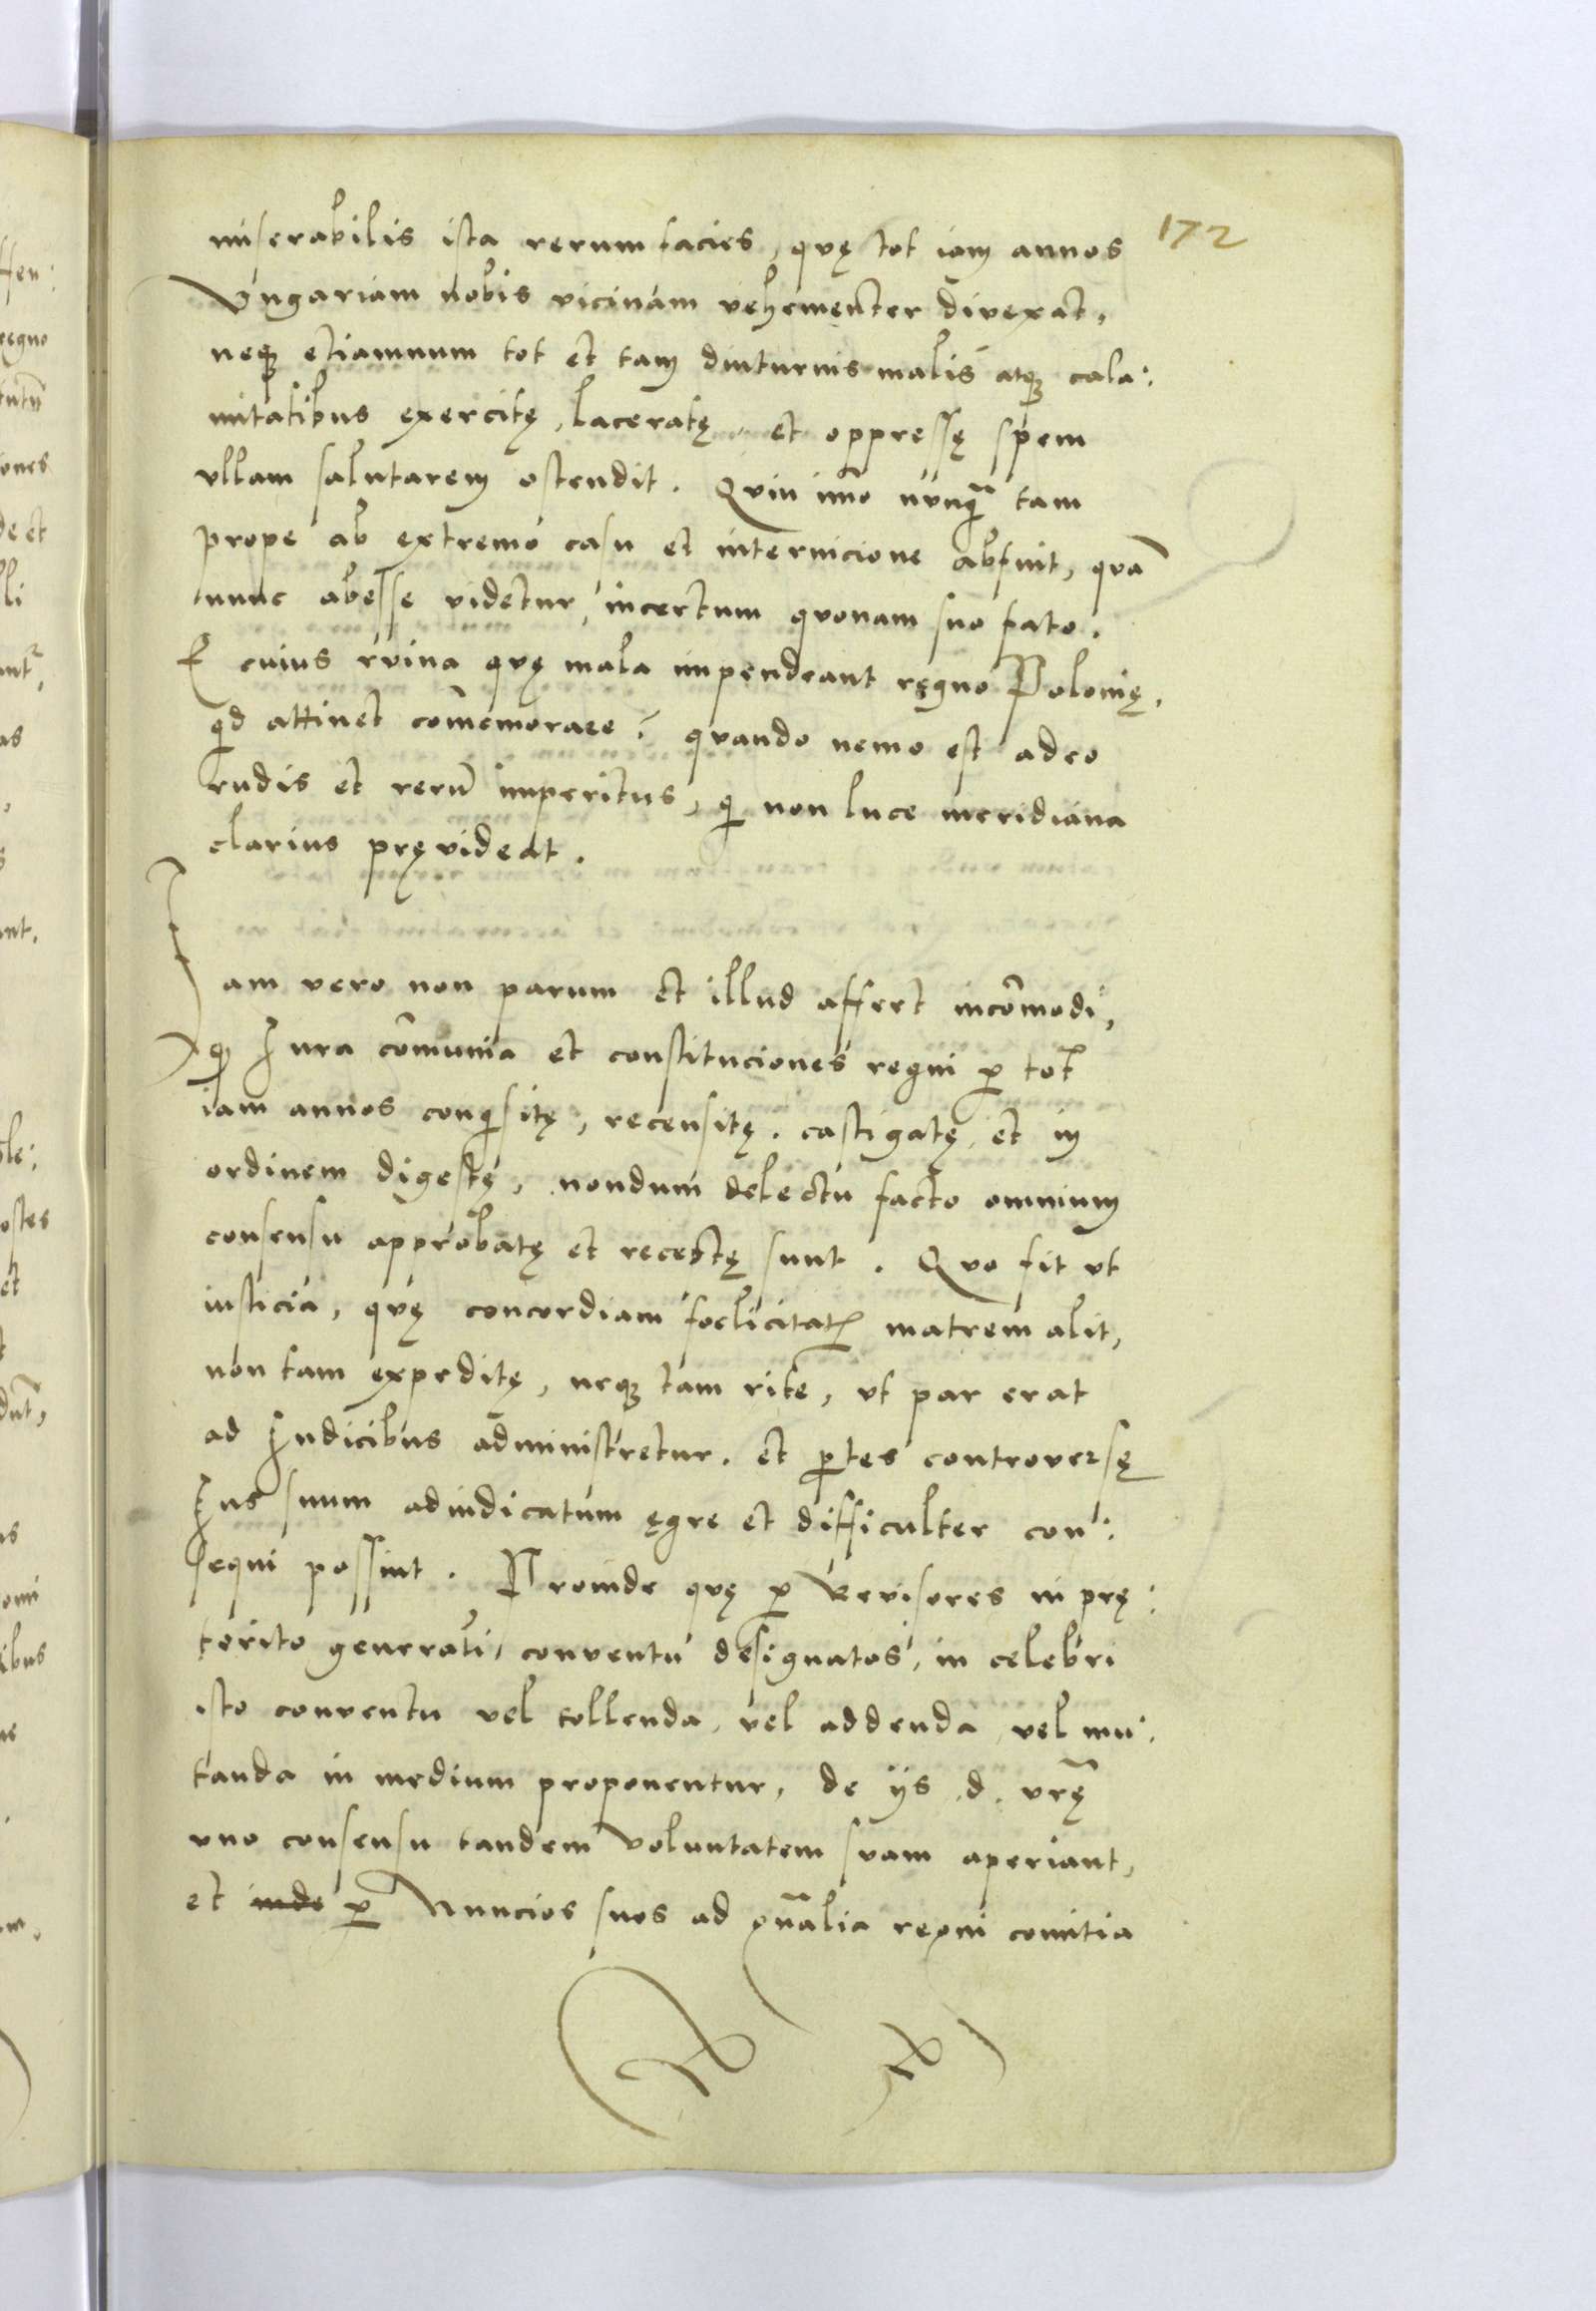 172
miserabilis ista rerum facies, quę tot iam annos
Vngariam nobis vicinam vehementer divexat,
neqꝫ etiamnum tot et tam diuturnis malis atqꝫ cala:
mitatibus exercitę, laceratę et oppressę spem
vllam salutarem ostendit. Quin imo nunq̃ tam
prope ab extremo casu et internicione abfuit, quā
nunc abesse videtur, incertum quonam suo fato.
E cuius rvina quę mala impendeant regno Polonię,
qd attinet com̄emorare? quando nemo est adeo
rudis et rerū imperitus, qi non luce meridiana
clarius pręvideat.
Jam vero non parum et illud affert incōmodi,
qꝫ Jura cōmunia et constituciones regni ꝑ tot
iam annos conqisitę, recensitę, castigatę et in
ordinem digestę, nondum delectu facto omnium
consensu approbatę et receptę sunt. Quo fit vt
iusticia, quę concordiam foelicitatꝭ matrem alit,
non tam expeditę, neqꝫ tam rite, vt par erat
ad Judicibus administretur, et ꝑtes controversę
Jus suum adiudicatum ęgre et difficulter con:
sequi possint. Proinde quę ꝑ Revisores in prę:
terito generali conventu designatos, in celebri
isto conventu vel tollenda, vel addenda, vel mu:
tanda in medium proponentur, de ijs .d. vrę̄
vno consensu tandem voluntatem suam aperiant,
et inde ꝑ Nuncios suos ad gn̄alia regni comitia